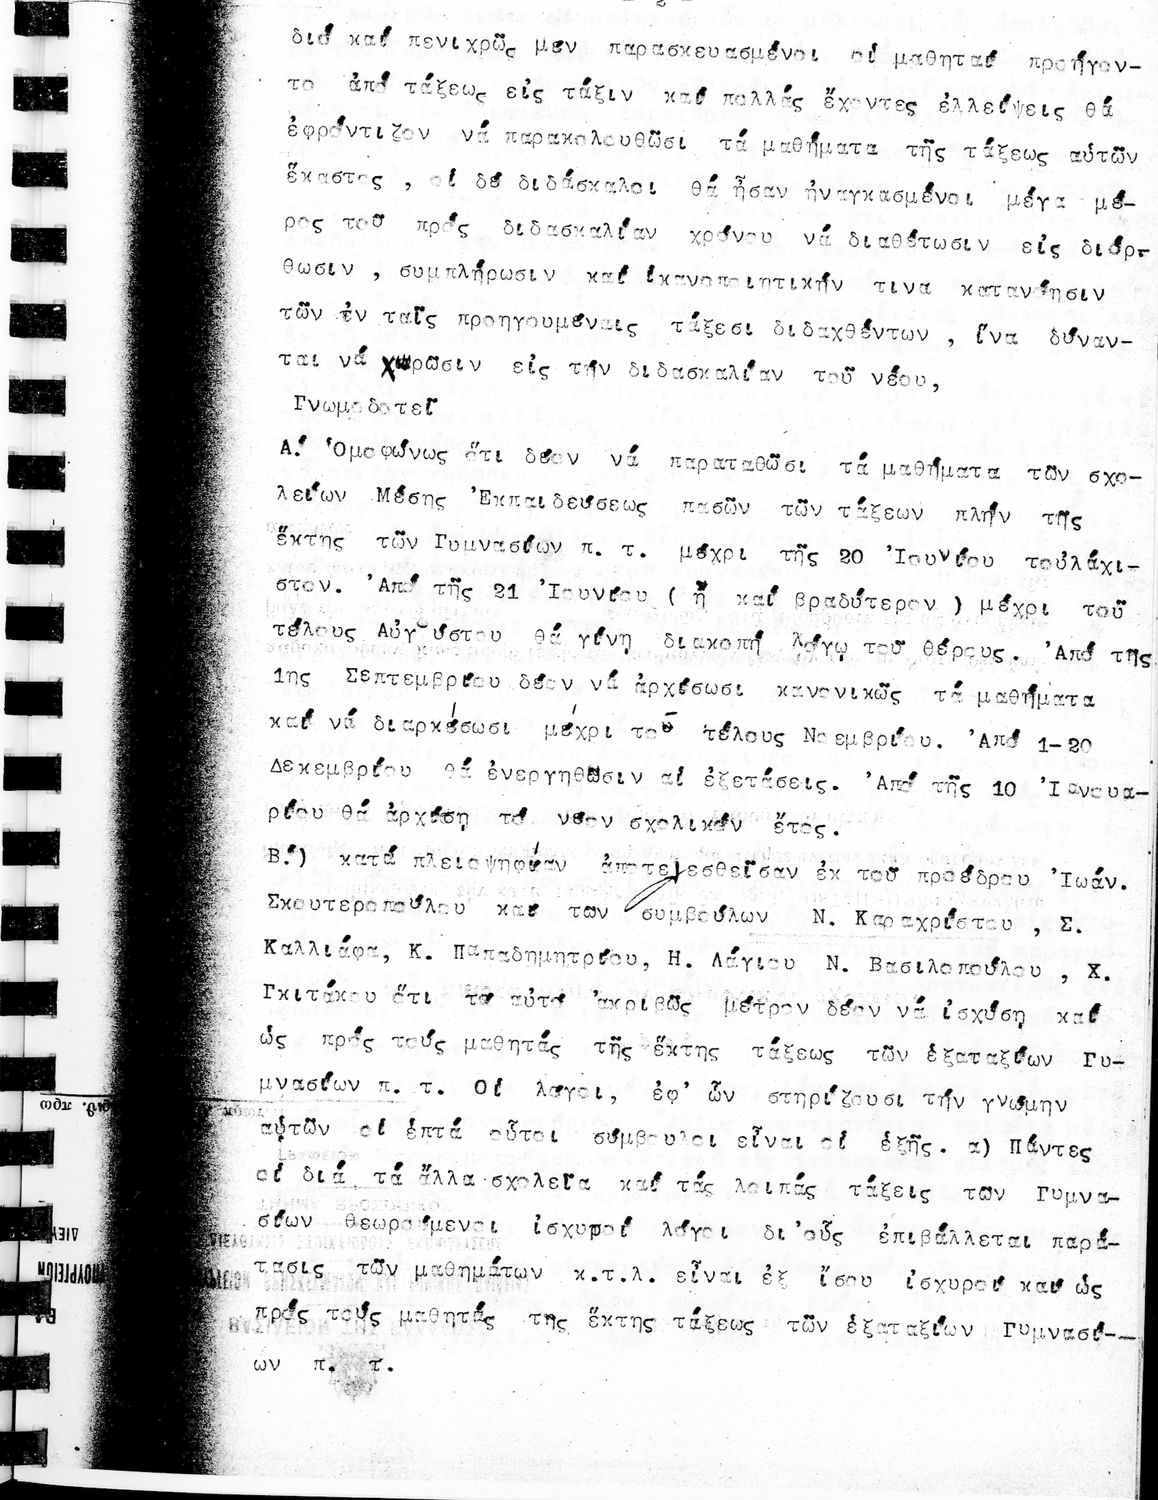 - 2 -
διό καί πενιχρῶς μέν παρασκευασμένοι οἱ μαθηταί προήγον-
το ἀπό τάξεως εἰς τάξιν καί πολλάς ἔχοντες ἐλλείψεις θά
ἐφρόντιζον νά παρακολουθῶσι τά μαθήματα τῆς τάξεως αὐτῶν
ἕκαστος , οἱ δέ διδάσκαλοι θά ἦσαν ἠναγκασμένοι μέγα μέ-
ρος τοῦ πρός διδασκαλίαν χρόνου νά διαθέτωσιν εἰς διόρ-
θωσιν , συμπλήρωσιν καί ἱκανοποιητικήν τινα κατανόησιν
τῶν ἐν ταῖς προηγουμέναις τάξεσι διδαχθέντων , ἵνα δύναν-
ται νά χωρῶσιν εἰς τήν διδασκαλίαν τοῦ νέου,
Γνωμοδοτεῖ
Α.́ Ὁμοφώνως ὅτι δέον νά παραταθῶσι τά μαθήματα τῶν σχο-
λείων Μέσης Ἐκπαιδεύσεως πασῶν τῶν τάξεων πλήν τῆς
ἕκτης τῶν Γυμνασίων π. τ. μέχρι τῆς 20 Ἰουνίου τοὐλάχι-
στον. Ἀπό τῆς 21 Ἰουνίου ( ἤ καί βραδύτερον ) μέχρι τοῦ
τέλους Αὐγούστου θά γίνη διακοπή λόγῳ τοῦ θέρους. Ἀπό τῆς
1ης Σεπτεμβρίου δέον νά ἀρχίσωσι κανονικῶς τά μαθήματα
καί νά διαρκέσωσι μέχρι τοῦ τέλους Νοεμβρίου. Ἀπό 1-20
Δεκεμβρίου θά ἐνεργηθῶσιν αἱ ἐξετάσεις. Ἀπό τῆς 10 Ἰανουα-
ρίου θά ἀρχίση τό νέον σχολικόν ἔτος.
Β.́) κατά πλειοψηφίαν ἀποτελεσθεῖσαν ἐκ τοῦ προέδρου Ἰωάν.
Σκουτεροπούλου καί τῶν συμβούλων Ν. Καραχρίστου , Σ.
Καλλιάφα, Κ. Παπαδημητρίου, Η. Λάγιου Ν. Βασιλοπούλου , Χ.
Γκιτάκου ὅτι τό αὐτό ἀκριβῶς μέτρον δέον νά ἰσχύσῃ καί
ὡς πρός τούς μαθητάς τῆς ἕκτης τάξεως τῶν ἑξαταξίων Γυ-
μνασίων π. τ. Οἱ λόγοι, ἐφ' ὧν στηρίζουσι τήν γνώμην
αὐτῶν οἱ ἑπτά οὗτοι σύμβουλοι εἶναι οἱ ἑξῆς. α) Πάντες
οἱ διά τά ἄλλα σχολεῖα καί τάς λοιπάς τάξεις τῶν Γυμνα-
σίων θεωρούμενοι ἰσχυροί λόγοι δι'οὕς ἐπιβάλλεται παρά-
τασις τῶν μαθημάτων κ.τ.λ. εἶναι ἐξ ἴσου ἰσχυροί καί ὡς
πρός τούς μαθητάς τῆς ἕκτης τάξεως τῶν ἑξαταξίων Γυμνασί-
ων π. τ.